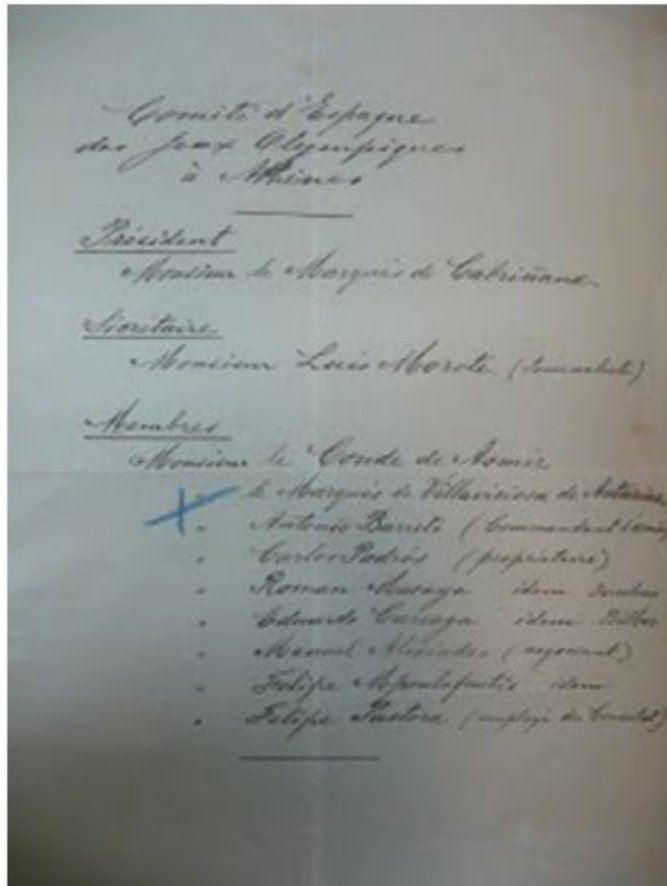 Comité d'Espagne
des Jeux Olympiques
à Athènes
Président
Monsieur le Marquis de Cabriñana
Sécrétaire
Monsieur Luis Morote (journaliste)
Membres
Monsieur le Conde de
" le Marquis de Villaviciosa de Asturias
" Antonio Barreto (Commandant
" Carlos Padrós (propriétaire)
" Roman Macaya idem
" Eduardo Careaga idem Bilbao
" Manuel (négociant)
" Felipe idem
" Felipe Pastora (employé du Consulat)